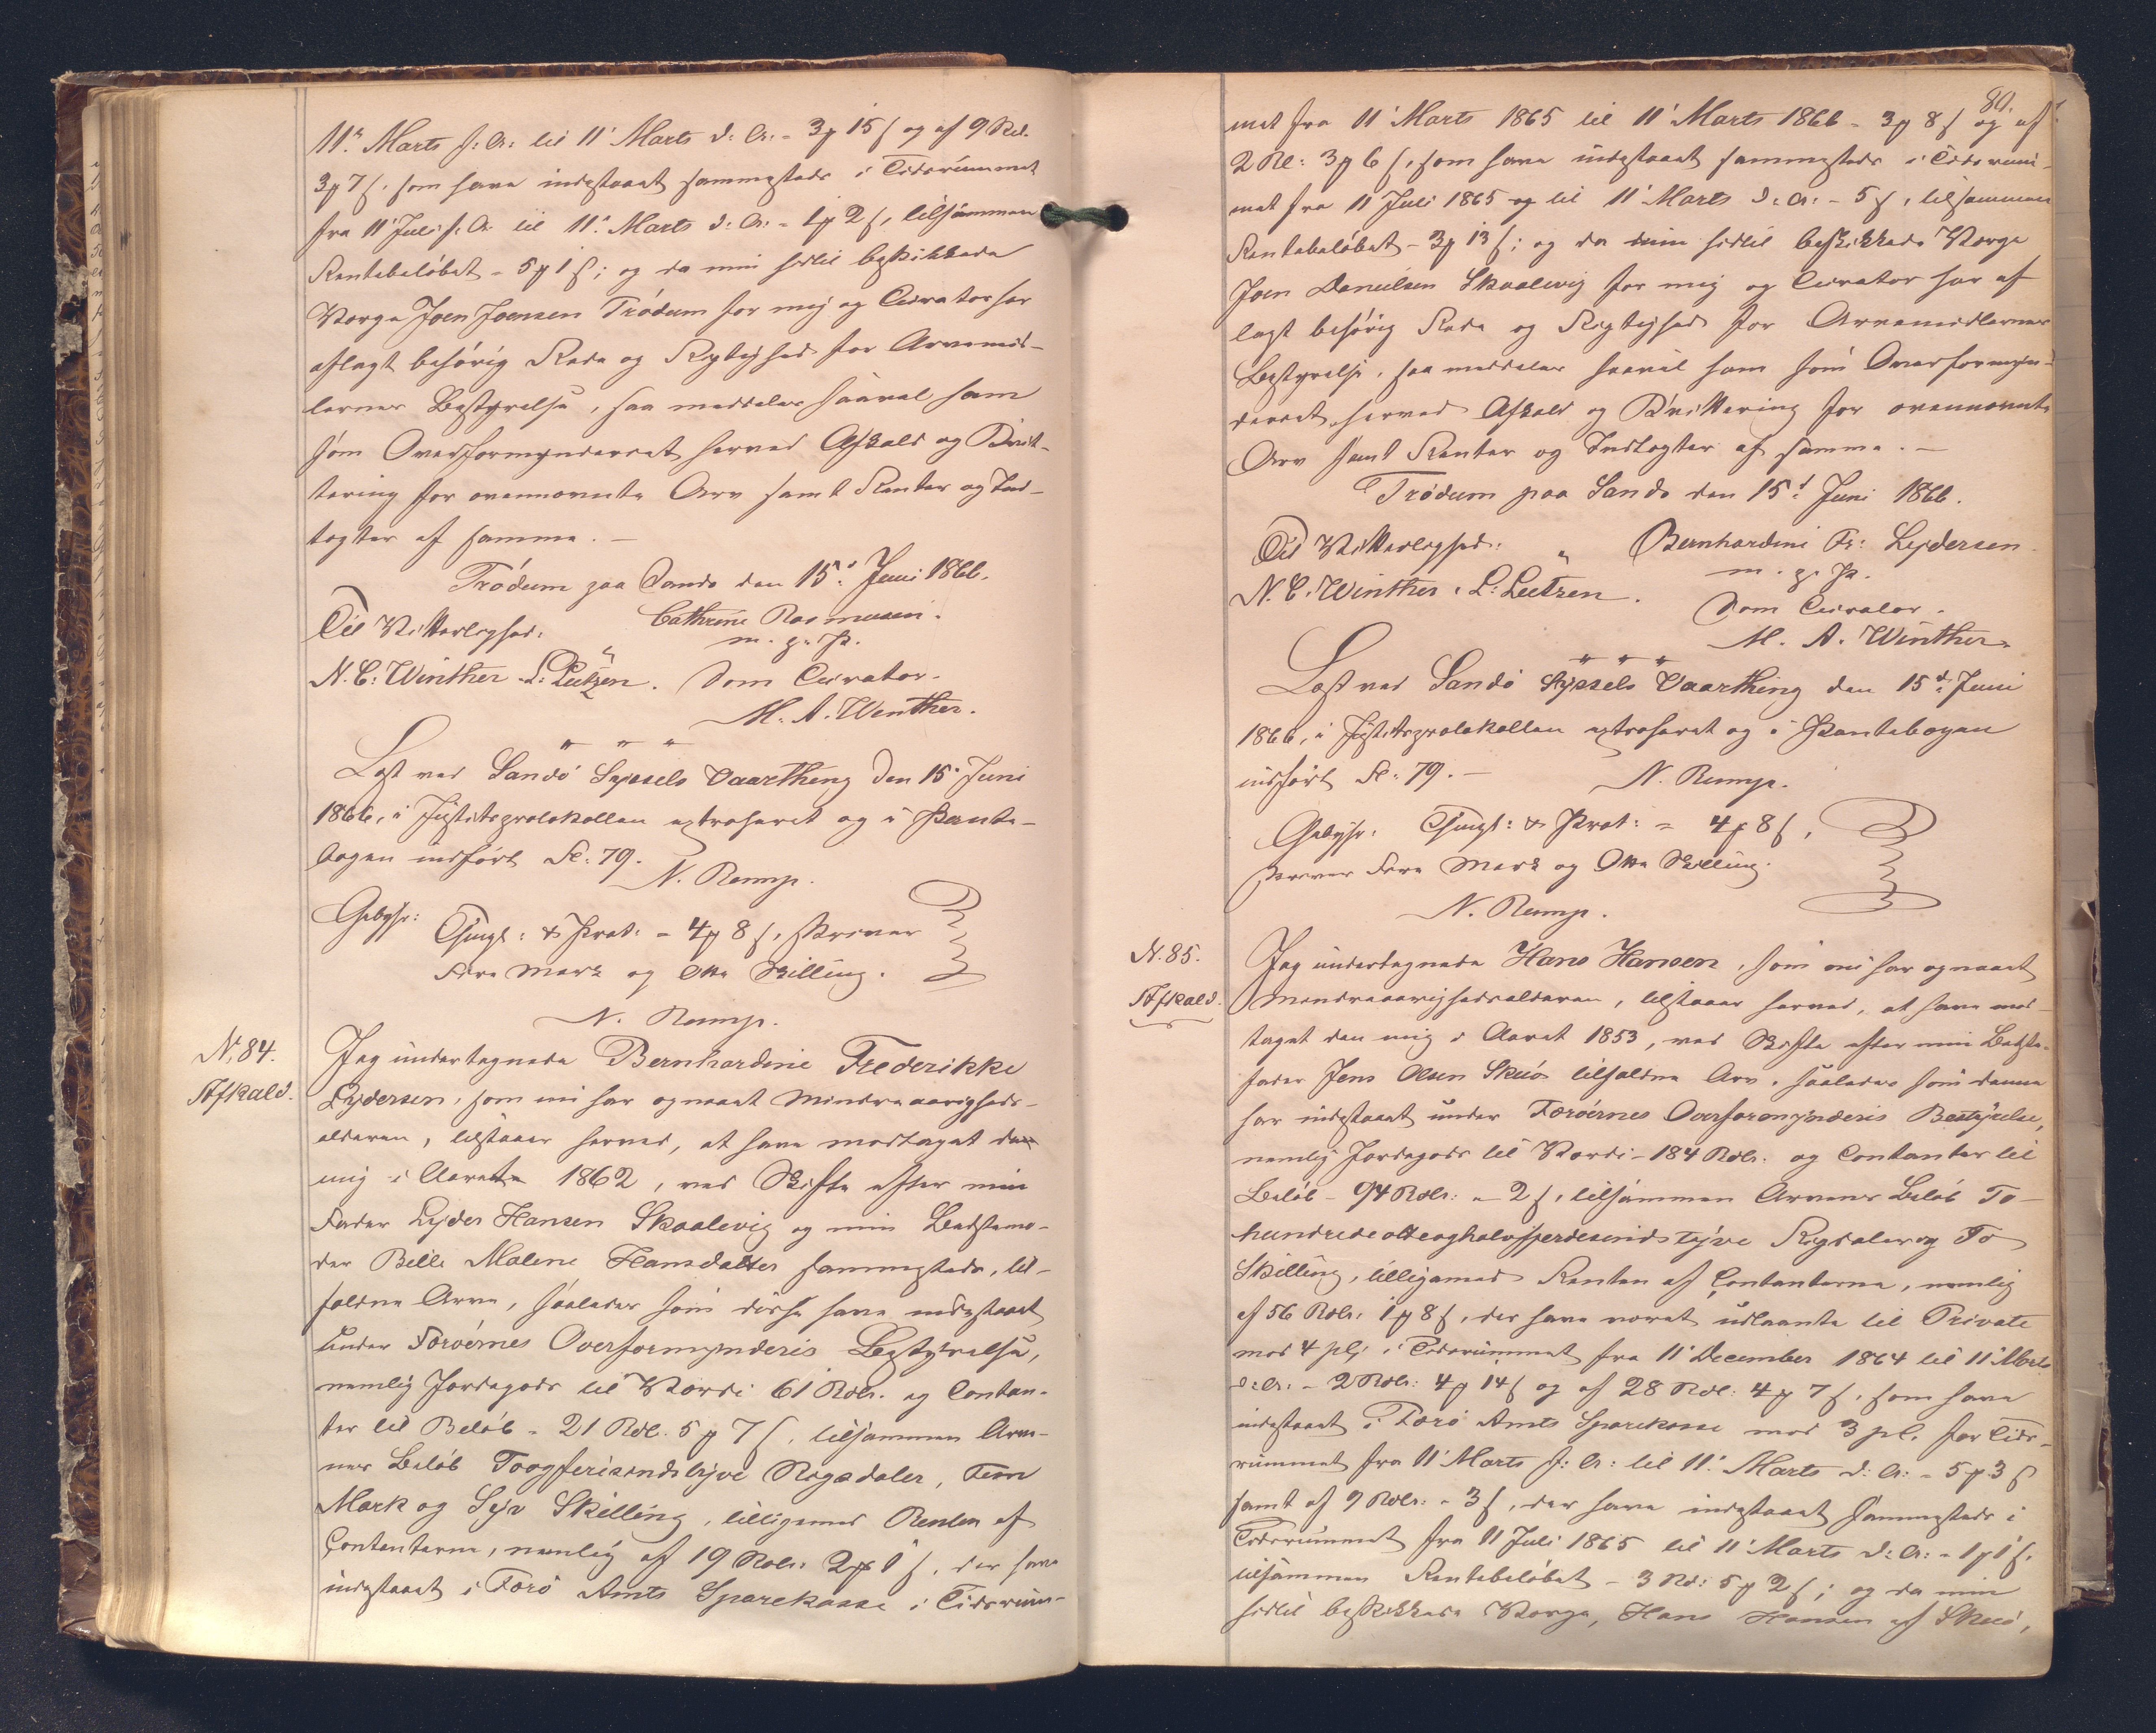 11te Marts f: A: til 11' Marts d: A: - 3 ₻ 15 ß og af 9 Rd.
3 ₻ 7 ß, som have indestaaet sammesteds i Tidsrummet
fra 11' Juli f: A: til 11' Marts d: A: - 1 ₻ 2 ß, tilsammen
Rentebeløbet - 5 ₻ 1 ß; og da min hidtil beskikkede
Værge Joen Joensen Trödum for mig og Curator har
aflagt behörig Rede og Rigtighed for Arvemid-
lernes Bestyrelse, saa meddeles saavel ham
som Overformynderiet herved Afkald og Qvit-
tering for ovennævnte Arv samt Renter og Ind-
tægter af samme. -
Trödum paa Sandö den 15de Juni 1866.
Til Vitterlighed: Cathrine Rasmussen.
m. p. P.
N. C. Winther. L: Lützen. Som Curator.
M. A. Winther.
" " "
Læst ved Sandö Syssels Vaarthing den 15' Juni
1866, i Justitsprotokollen extraheret og i Pante-
bogen indfört Fol: 79.
N. Remp.
Gebyr: Thingl: & Prot: = 4 ₻ 8 ß, skriver
Fire Mark og Otte Skilling.
N. Remp.
N. 84.
Afkald.
Jeg undertegnede Bernhardine Frederikke
Lydersen, som nu har opnaaet Mindreaarigheds-
alderen, tilstaaer herved, at have modtaget den
mig i Aaret 1862, ved Skifte efter min
Fader Lyder Hansen Skaalevig og min Bedstemo-
der Bille Malene Hansdatter sammesteds, til-
faldne Arve, saaledes som disse have indestaaet
under Færöernes Overformynderis Bestyrelse,
nemlig Jordegods til Værdi 61 Rdlr. og Contan-
ter til Belöb - 21 Rdl. 5 ₻ 7 ß, tilsammen Arve-
nes Belöb Toogfirsindstyve Rigsdaler, Fem
Mark og Syv Skilling, tilligemed Renten af
Contanterne, nemlig af 19 Rdlr. 2 ₻ 1 ß, der have
indestaaet i Færö Amts Sparekasse i Tidsrum-
80.
met fra 11' Marts 1865 til 11' Marts 1866 - 3 ₻ 8 ß og af
2 Rd: 3 ₻ 6 ß, som have indestaaet sammesteds i Tidsrum-
met fra 11 Juli 1865 og til 11' Marts d: A: - 5 ß, tilsammen
Rentebeløbet - 3 ₻ 13 ß; og da min hidtil beskikkede Værge
Joen Danielsen Skaalevig for mig og Curator har af-
lagt behörig Rede og Rigtighed for Arvemidlernes
Bestyrelse, saa meddeles saavel ham som Overformyn-
deriet herved Afkald og Qvittering for ovennævnte
Arv samt Renter og Indtægter af samme. -
Trödum paa Sandö den 15d Juni 1866.
Til Vitterlighed: Bernhardini Fr: Lydersen
m. p. P.
N. C. Winther. L: Lützen. Som Curator.
M. A. Winther.
" " "
Læst ved Sandö Syssels Vaarthing den 15d Juni
1866, i Justitsprotokollen extraheret og i Pantebogen
indfört Fol: 79. - N. Remp.
Gebyr: Thingl: & Prot: = 4 ₻ 8 ß,
skriver Fire Mark og Otte Skilling.
N. Remp.
N. 85.
Afkald.
Jeg undertegnede Hans Hansen, som nu har opnaaet
Mindreaarighedsalderen, tilstaaer herved, at have mod-
taget den mig i Aaret 1853, ved Skifte efter min Bedste-
fader Jens Olsen Skuö tilfaldne Arv, saaledes som denne
har indestaaet under Færöernes Overformynderis Bestyrelse,
nemlig Jordegods til Værdi - 184 Rdlr. og Contanter til
Belöb - 94 Rdlr: - 2 ß, tilsammen Arvens Belöb To-
hundrede otteoghalvfjerdesindstyve Rigsdaler og To
Skilling, tilligemed Renten af Contanterne, nemlig
af 56 Rdlr. 1 ₻ 8 ß, der have været udlaante til Private
mod 4 pC. i Tidsrummet fra 11' December 1864 til 11' Marts
d: A: - 2 Rdlr: 4 ₻ 14 ß og af 28 Rdl: 4 ₻ 7 ß, som have
indestaaet i Færö Amts Sparekasse mod 3 pC. for Tids-
rummet fra 11' Marts f: A: til 11' Marts d: A: - 5 ₻ 3 ß
samt af 9 Rdlr. - 3 ß, der have indestaaet sammesteds i
Tidsrummet fra 11 Juli 1865 til 11' Marts d: A: - 1 ₻ 1 ß,
tilsammen Rentebeløbet - 3 Rd: 5 ₻ 2 ß; og da min
hidtil beskikkede Værge, Hans Hansen af Skuö,